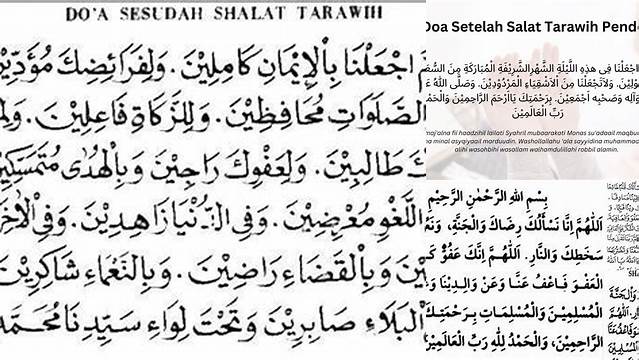 DO'A SESUDAH SHALAT TARAWIH
اجْعَلْنَا بِالْإِيْمَانِ كَامِلِيْنَ. وَلِفَرَائِضِكَ مُؤَدِّيْ
الصَّلَوَاتِ مُحَافِظِيْنَ. وَلِلزَّكَاةِ فَاعِلِيْنَ.
طَالِبِيْنَ. وَلِعَفْوِكَ رَاجِيْنَ وَبِالْهُدَى مُتَمَسِّكِيْ
اللَّغْوِ مُعْرِضِيْنَ. وَفِي الدُّنْيَا زَاهِدِيْنَ. وَفِي الْآخِرَ
وَبِالْقَضَاءِ رَاضِيْنَ. وَبِالنَّعْمَاءِ شَاكِرِيْنَ
الْبَلَاءِ صَابِرِيْنَ وَتَحْتَ لِوَاءِ سَيِّدِنَا مُحَمَّدٍ
Doa Setelah Salat Tarawih Pend
اجْعَلْنَا فِى هٰذِهِ اللَّيْلَةِ الشَّهْرِالشَّرِيْفَةِ الْمُبَارَكَةِ مِنَ السُّعَ
وَلَاتَجْعَلْنَا مِنَ الْاَشْقِيَاءِ الْمَرْدُوْدِيْنَ. وَصَلَّى اللهُ
وَآلِهِ وَصَحْبِهِ أَجْمَعِيْنَ. بِرَحْمَتِكَ يَاأَرْحَمَ الرَّاحِمِيْنَ وَالْحَمْدُ
رَبِّ الْعَالَمِيْنَ
maj'alna fii haadzihil lailati Syahril mubaarakati Monas su'adaail maqbu
na minal asyqiyaail marduudin. Washollallahu 'ala sayyidina muhammad
alihi wasohbihi wasollam walhamdulillahi robbil alamin.
بِسْمِ اللهِ الرَّحْمٰنِ الرَّحِيْمِ
اَللّٰهُمَّ اِنَّا نَسْأَلُكَ رِضَاكَ وَالْجَنَّةَ، وَنَعُ
سَخَطِكَ وَالنَّارِ. اَللّٰهُمَّ اِنَّكَ عَفُوٌّ كَ
الْعَفْوَ فَاعْفُ عَنَّا وَعَنْ وَالِدِيْنَا وَ
الْمُسْلِمِيْنَ وَالْمُسْلِمَاتِ بِرَحْمَتِكَ
الرَّاحِمِيْنَ، وَالْحَمْدُ لِلّٰهِ رَبِّ الْعَالَمِيْنَ